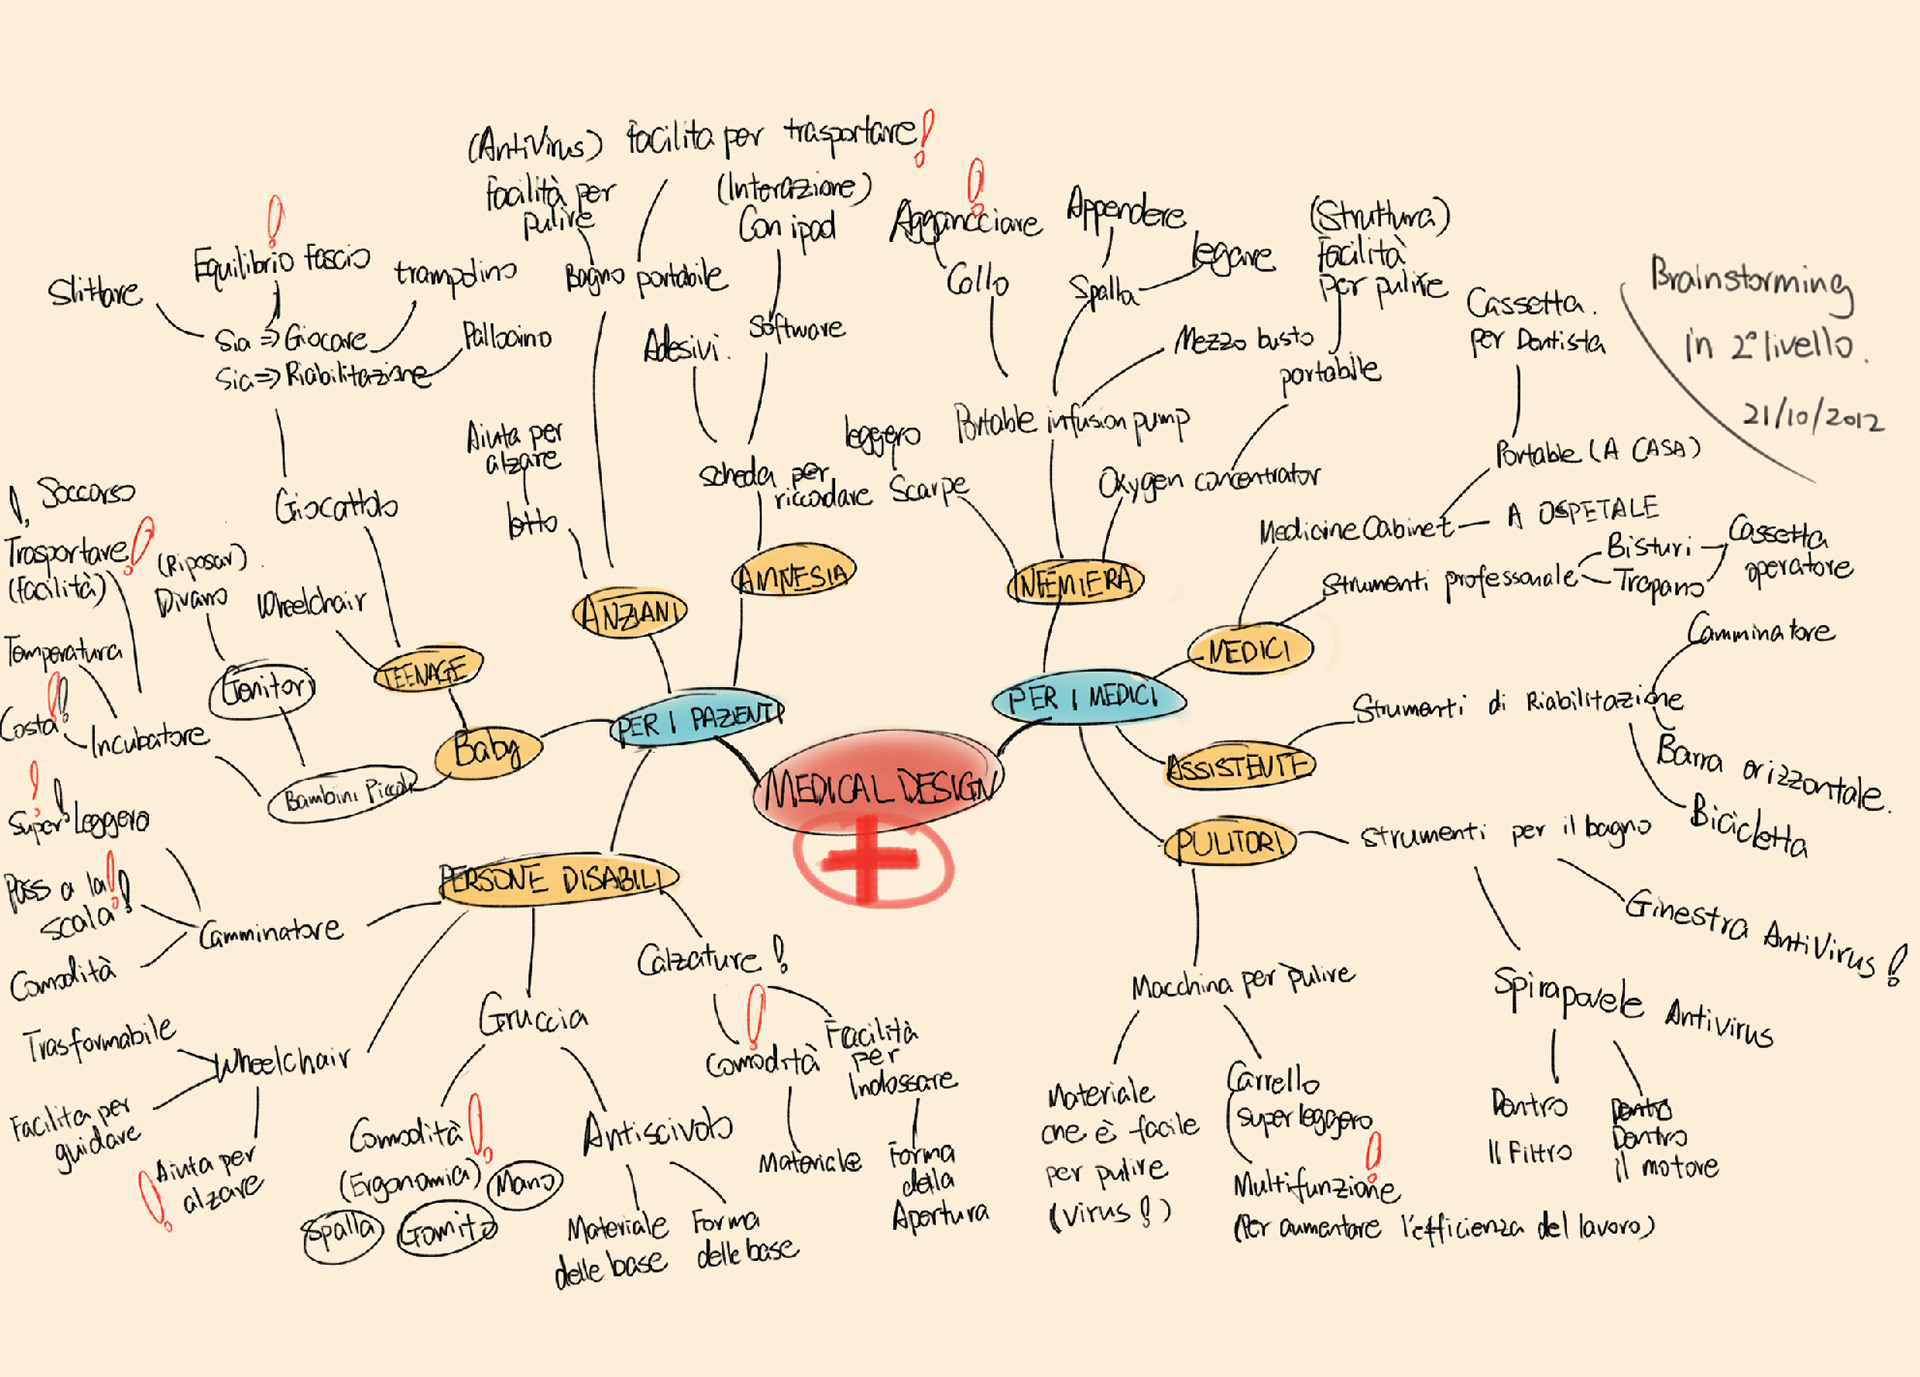 (AntiVirus) facilita per trasportare!
facilità per
pulire
(Interazione)
Con ipad
Bagno portabile
Software
Adesivi.
Equilibrio fascio
Slittare
trampolino
Sia => Giocare
Sia => Riabilitazione
Palloncino
Aiuta per
alzare
lotto
scheda per
riccodare
Giocattolo
!, Soccorso
Trasportare!
(facilità)
(Riposar)
Divano
Wheelchair
Temperatura
Costa!!
Incubatore
Genitori
Bambini Piccoli
TEENAGE
Baby
ANZIANI
AMNESIA
PER I PAZIENTI
Aggancciare
Collo
Appendere
legare
Spalla
(Struttura)
facilità
per pulire
Mezzo busto
portabile
Portable infusion pump
leggero
Scarpe
Oxygen concentrator
Cassetta.
per Dentista
Portable (A CASA)
Medicine Cabinet
A OSPETALE
Strumenti professonale
Bisturi
Trapano
Cassetta
operatore
Brainstorming
in 2° livello.
21/10/2012
MEDICI
PER I MEDICI
MEDICAL DESIGN
ASSISTENTE
PULITORI
Strumenti di Riabilitazione
Camminatore
Barra orizzontale.
Bicicletta
Strumenti per il bagno
Ginestra AntiVirus!
Spirapovele Antivirus
Dentro
Il Filtro
Dentro
il motore
Macchina per pulire
Materiale
che è facile
per pulire
(virus!)
Carrello
super leggero
Multifunzione!
(Per aumentare l'efficienza del lavoro)
PERSONE DISABILI
Super Leggero
Pass a la
scala!!
Comodità
Camminatore
Trasformabile
Wheelchair
Facilita per
guidare
Aiuta per
alzare
Gruccia
Comodità!
(Ergonomia)
Mano
Spalla
Gomito
Antiscivolo
Materiale
delle base
Forma
delle base
Calzature!
Comodità
Materiale
Facilità
per
Indossare
Forma
della
Apertura